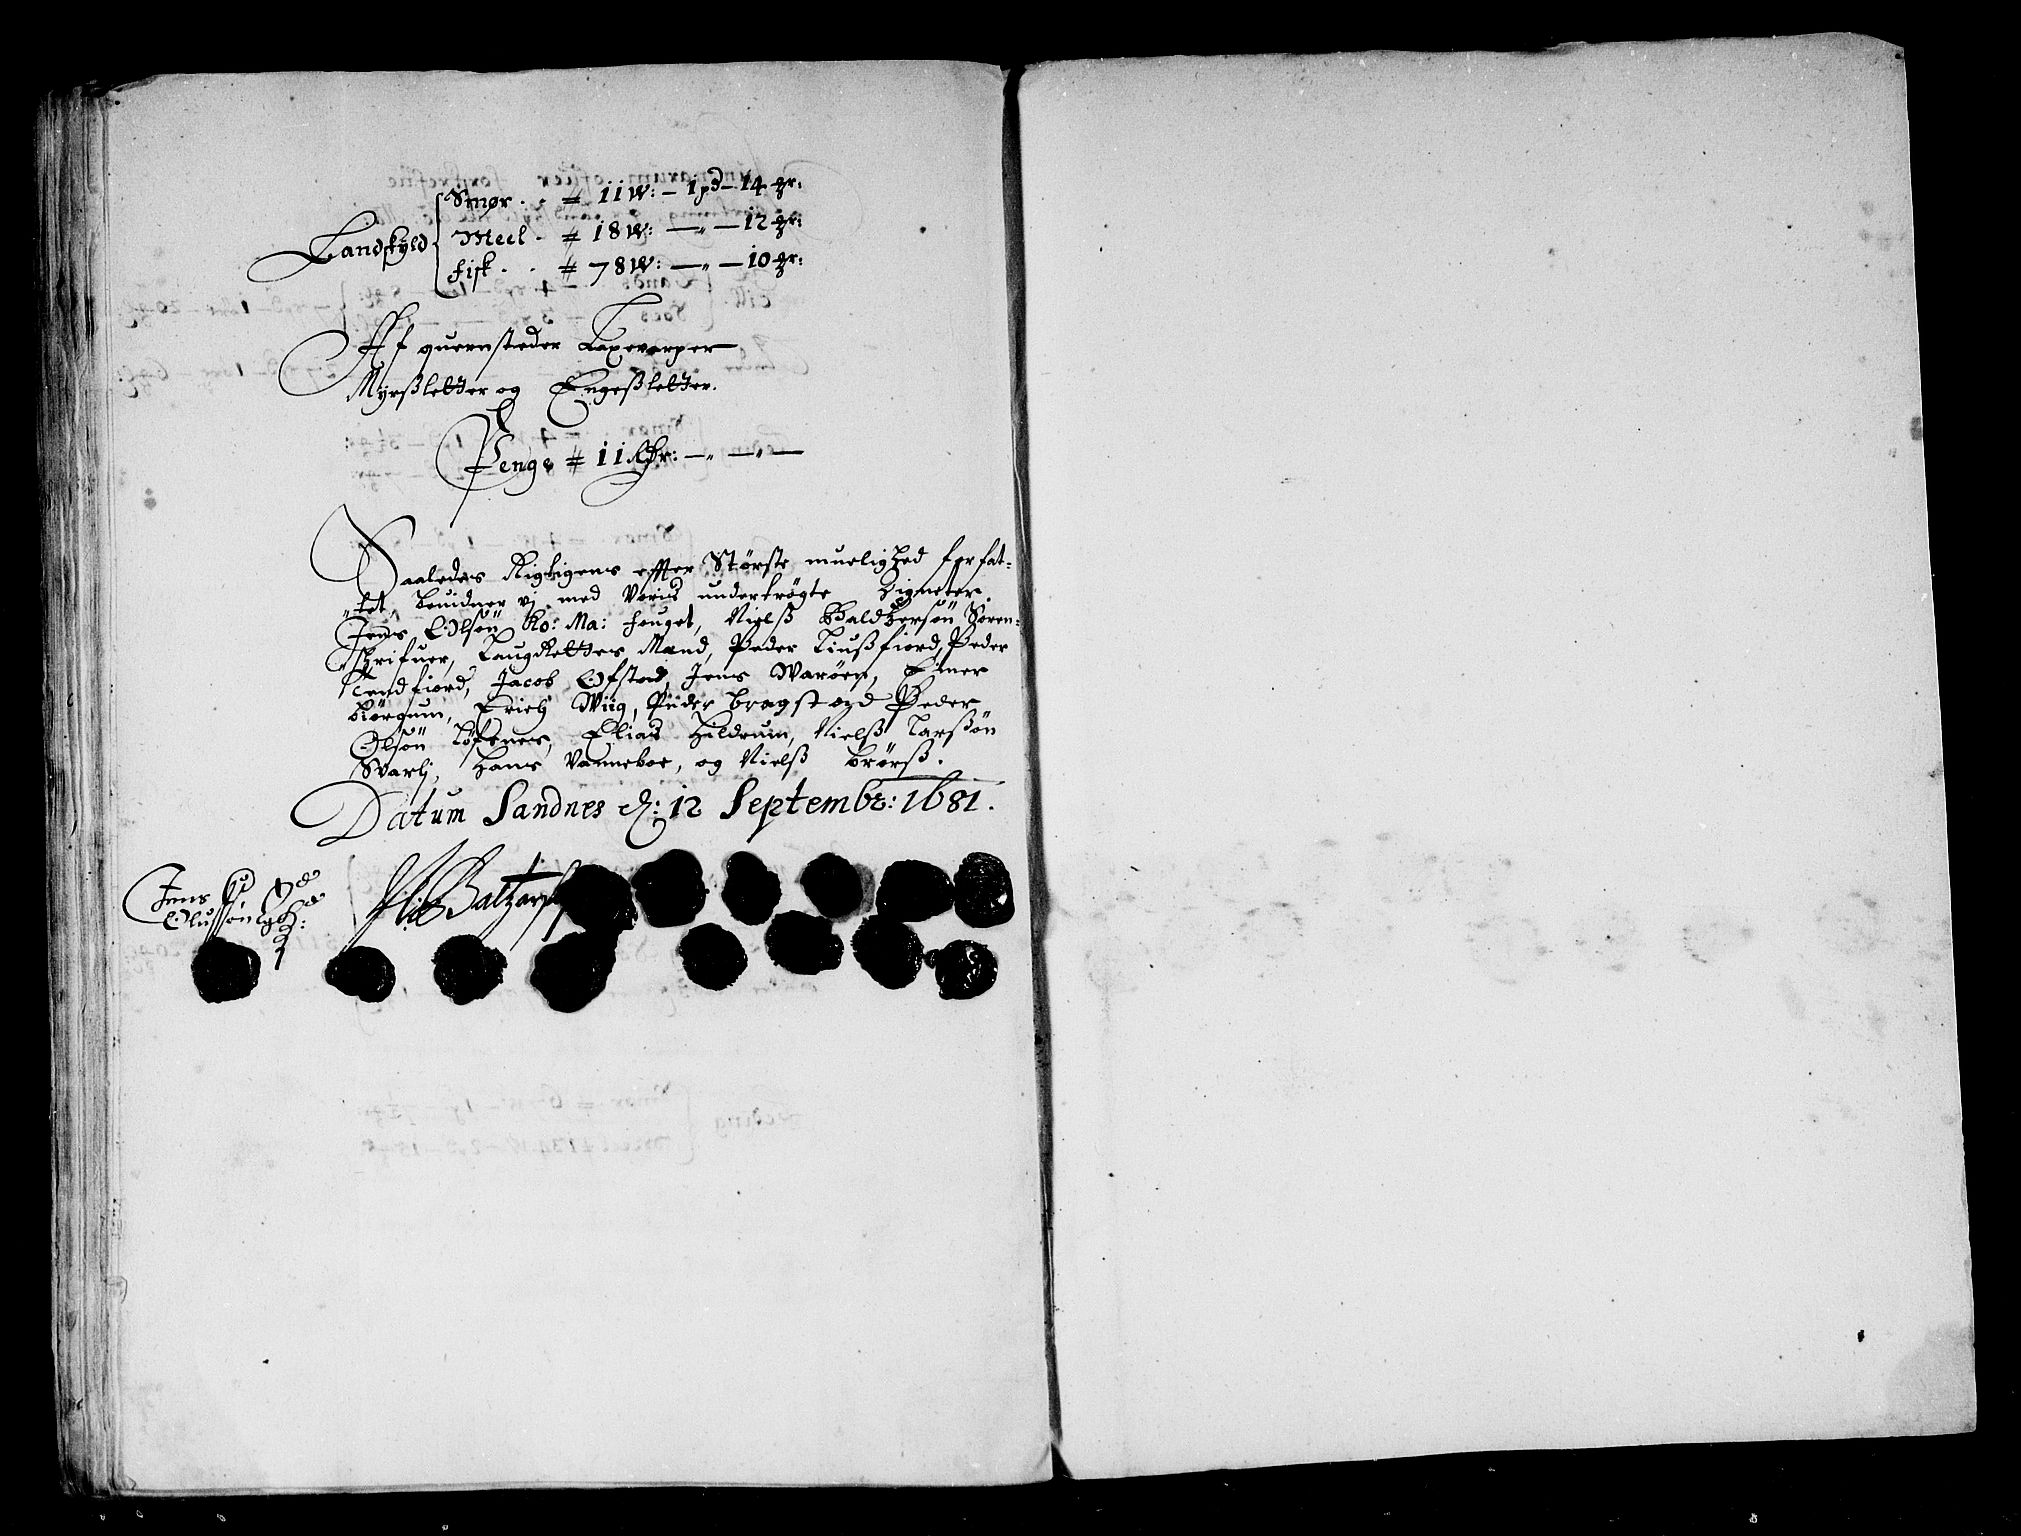 Landskyld
Smør . . # 11 W: – 1 pd – 14 gr:
Meel . # 18 W: – " – 12 gr:
fisk . . # 78 W: – " – 10 gr:
Af quernsteder Laxevarper
Myrsßletter og Engeßletter.
Penge # 11 Rdr: – " – " –
Saaledes Rigtigens effter Største muelighed forfat-
"tet, beuidner vj med Voris undertrögte Zigneter.
Jens Olsön Ko: Ma: fouget, Nielß Baldzersön Soren-
"skrifuer, Laugrettes Mand, Peder Liußfiord, Peder
Tendfiord, Jacob Ofstad, Jens Waröen, Einer
Börgum, Erich Wiig, Peder Bragstad Peder
Olsön Löfenes, Elias Hildrum, Nielß Larßön
Svarlj, Hans Vanneboe, og Nielß Brörß.
Datum Sandnes d: 12 Septembr: 1681.
Jens
Olufsön
Baltzars